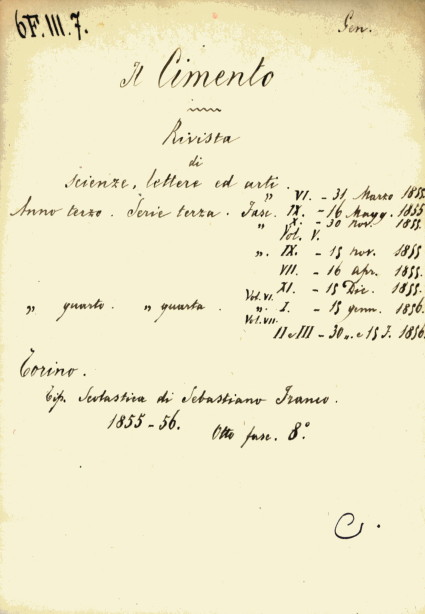 6F.III.7.
Gen.
Il Cimento
Rivista
di
scienze, lettere ed arti.
„ VI. - 31 Marzo 1855
Anno terzo. Serie terza. Fasc. IX. - 16 Magg. 1855
„ X. - 30 nov. 1855.
Vol. V.
„ IX. - 15 nov. 1855
VII. - 16 apr. 1855.
XI. - 15 Dic. 1855.
Vol. VI.
„ quarto. „ quarta. „ I. - 15 genn. 1856.
Vol. VII.
II e III - 30 „ e 15 F. 1856.
Torino.
Tip. Scolastica di Sebastiano Franco.
1855-56.
Otto fasc. 8°.
C.